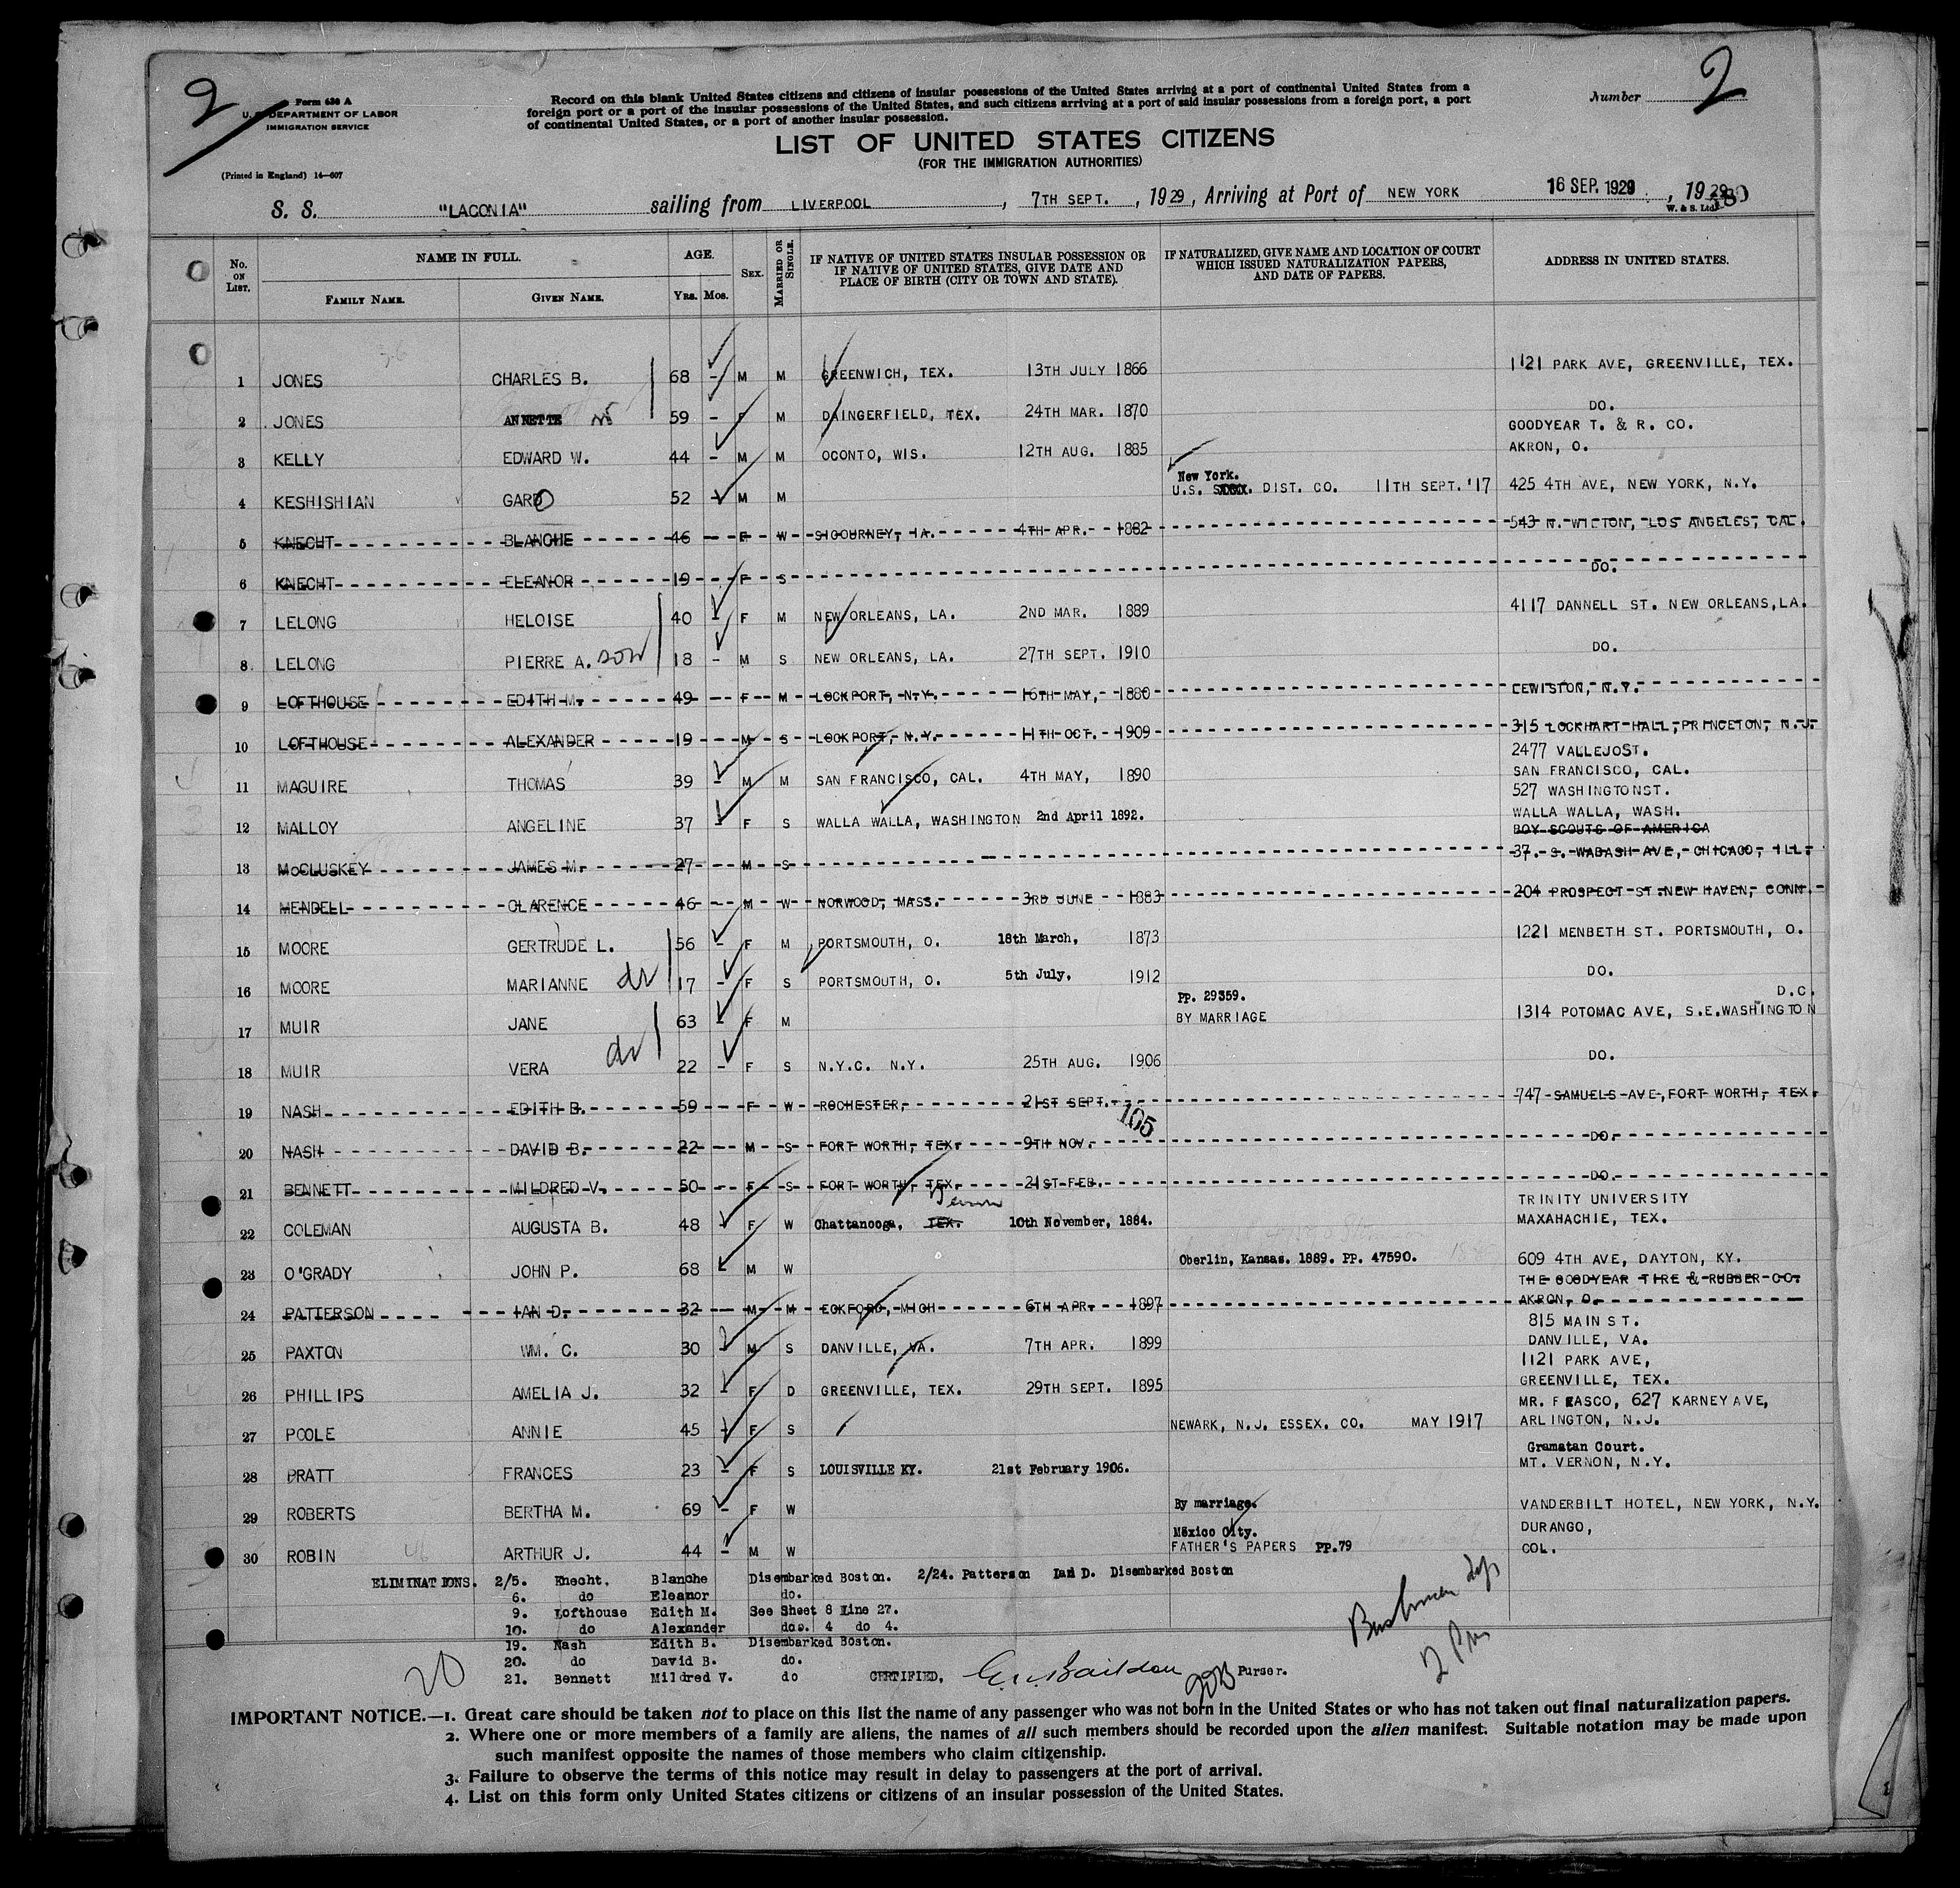 2
Form 630 A
U.S. DEPARTMENT OF LABOR
IMMIGRATION SERVICE
(Printed in England) 14—607
Record on this blank United States citizens and citizens of insular possessions of the United States arriving at a port of continental United States from a
foreign port or a port of the insular possessions of the United States, and such citizens arriving at a port of said insular possessions from a foreign port, a port
of continental United States, or a port of another insular possession.
Number 2
LIST OF UNITED STATES CITIZENS
(FOR THE IMMIGRATION AUTHORITIES)
S. S. "LACONIA" sailing from LIVERPOOL, 7TH SEPT., 1929, Arriving at Port of NEW YORK 16 SEP. 1929, 1929
W. & S. Ltd.
No. ON LIST. NAME IN FULL. AGE. SEX. MARRIED OR SINGLE. IF NATIVE OF UNITED STATES INSULAR POSSESSION OR IF NATIVE OF UNITED STATES, GIVE DATE AND PLACE OF BIRTH (CITY OR TOWN AND STATE). IF NATURALIZED, GIVE NAME AND LOCATION OF COURT WHICH ISSUED NATURALIZATION PAPERS, AND DATE OF PAPERS. ADDRESS IN UNITED STATES.
FAMILY NAME. GIVEN NAME. YRS. MOS.
1 JONES CHARLES B. 68 - M M GREENWICH, TEX. 13TH JULY 1866 1121 PARK AVE, GREENVILLE, TEX.
2 JONES ANNETTE 59 - F M DAINGERFIELD, TEX. 24TH MAR. 1870 DO.
3 KELLY EDWARD W. 44 - M M OCONTO, WIS. 12TH AUG. 1885 GOODYEAR T. & R. CO. AKRON, O.
4 KESHISHIAN GARO 52 - M M New York. U.S. DIST. CO. 11TH SEPT. '17 425 4TH AVE, NEW YORK, N.Y.
5 KNECHT BLANCHE 46 - F W SIGOURNEY, IA. 4TH APR. 1882 543 N. WILTON, LOS ANGELES, CAL.
6 KNECHT ELEANOR 19 - F S DO.
7 LELONG HELOISE 40 - F M NEW ORLEANS, LA. 2ND MAR. 1889 4117 DANNELL ST. NEW ORLEANS, LA.
8 LELONG PIERRE A. son 18 - M S NEW ORLEANS, LA. 27TH SEPT. 1910 DO.
9 LOFTHOUSE EDITH M. 49 - F M LOCKPORT, N.Y. 16TH MAY, 1880 LEWISTON, N.Y.
10 LOFTHOUSE ALEXANDER 19 - M S LOCKPORT, N.Y. 11TH OCT. 1909 315 LOCKHART HALL, PRINCETON, N.J.
11 MAGUIRE THOMAS 39 - M M SAN FRANCISCO, CAL. 4TH MAY, 1890 2477 VALLEJO ST. SAN FRANCISCO, CAL.
12 MALLOY ANGELINE 37 - F S WALLA WALLA, WASHINGTON 2nd April 1892. 527 WASHINGTON ST. WALLA WALLA, WASH.
13 McCLUSKEY JAMES M. 27 - M S BOY SCOUTS OF AMERICA 37. S. WABASH AVE, CHICAGO, ILL.
14 MENDELL CLARENCE 46 - M W NORWOOD, MASS. 3RD JUNE 1883 204 PROSPECT ST. NEW HAVEN, CONN.
15 MOORE GERTRUDE L. 56 - F M PORTSMOUTH, O. 18th March, 1873 1221 MENBETH ST. PORTSMOUTH, O.
16 MOORE MARIANNE dr 17 - F S PORTSMOUTH, O. 5th July. 1912 DO.
17 MUIR JANE 63 - F M PP. 29359. BY MARRIAGE 1314 POTOMAC AVE, S.E. WASHINGTON D.C.
18 MUIR VERA dr 22 - F S N.Y.C. N.Y. 25TH AUG. 1906 DO.
19 NASH EDITH B. 59 - F W ROCHESTER, 21ST SEPT. 747 SAMUELS AVE, FORT WORTH, TEX.
105
20 NASH DAVID B. 22 - M S FORT WORTH, TEX. 9TH NOV. DO.
21 BENNETT MILDRED V. 50 - F S FORT WORTH, TEX. 21ST FEB. DO.
22 COLEMAN AUGUSTA B. 48 - F W Chattanooga, TEX. Tenn 10th November, 1884. TRINITY UNIVERSITY MAXAHACHIE, TEX.
23 O'GRADY JOHN P. 68 - M W Oberlin, Kansas. 1889. PP. 47590. 609 4TH AVE, DAYTON, KY.
24 PATTERSON IAN D. 32 - M M ECKFORD, MICH 6TH APR. 1897 THE GOODYEAR TIRE & RUBBER CO. AKRON, O.
25 PAXTON WM. C. 30 - M S DANVILLE, VA. 7TH APR. 1899 815 MAIN ST. DANVILLE, VA.
26 PHILLIPS AMELIA J. 32 - F D GREENVILLE, TEX. 29TH SEPT. 1895 1121 PARK AVE, GREENVILLE, TEX.
27 POOLE ANNIE 45 - F S NEWARK, N.J. ESSEX. CO. MAY 1917 MR. FRASCO, 627 KARNEY AVE, ARLINGTON, N.J.
28 PRATT FRANCES 23 - F S LOUISVILLE KY. 21st February 1906. Gramatan Court. MT. VERNON, N.Y.
29 ROBERTS BERTHA M. 69 - F W By marriage. VANDERBILT HOTEL, NEW YORK, N.Y.
30 ROBIN ARTHUR J. 44 - M W Mexico City. FATHER'S PAPERS PP.79 DURANGO, COL.
ELIMINATIONS. 2/5. Knecht. Blanche Disembarked Boston. 2/24. Patterson Ian D. Disembarked Boston
6. do Eleanor do.
9. Lofthouse Edith M. See Sheet 8 Line 27.
10. do Alexander do. 4 do 4.
19. Nash Edith B. Disembarked Boston.
20. do David B. do.
21. Bennett Mildred V. do
20
CERTIFIED, Purser.
IMPORTANT NOTICE.—1. Great care should be taken not to place on this list the name of any passenger who was not born in the United States or who has not taken out final naturalization papers.
2. Where one or more members of a family are aliens, the names of all such members should be recorded upon the alien manifest. Suitable notation may be made upon
such manifest opposite the names of those members who claim citizenship.
3. Failure to observe the terms of this notice may result in delay to passengers at the port of arrival.
4. List on this form only United States citizens or citizens of an insular possession of the United States.